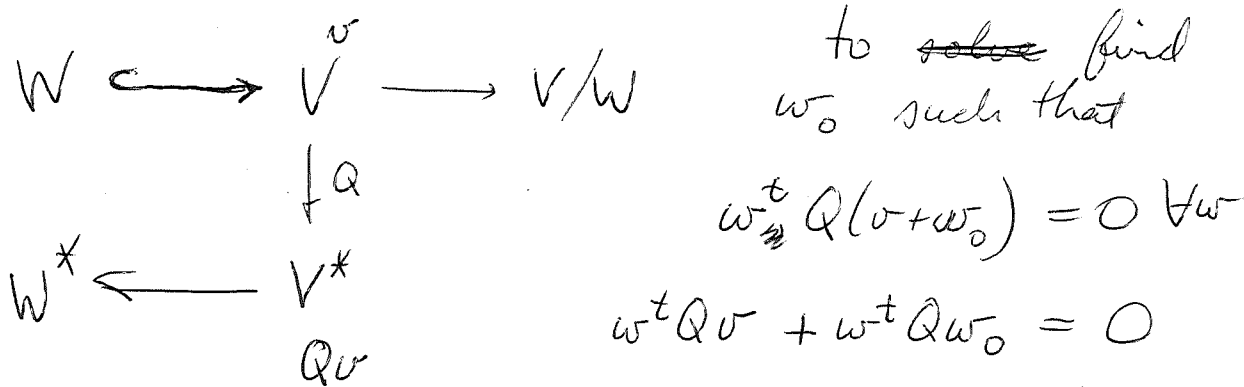 v
W ↪ V → V/W
↓ Q
W* ← V*
Qv
to find
w₀ such that
wᵗ Q(v+w₀) = 0 ∀w
wᵗQv + wᵗQw₀ = 0